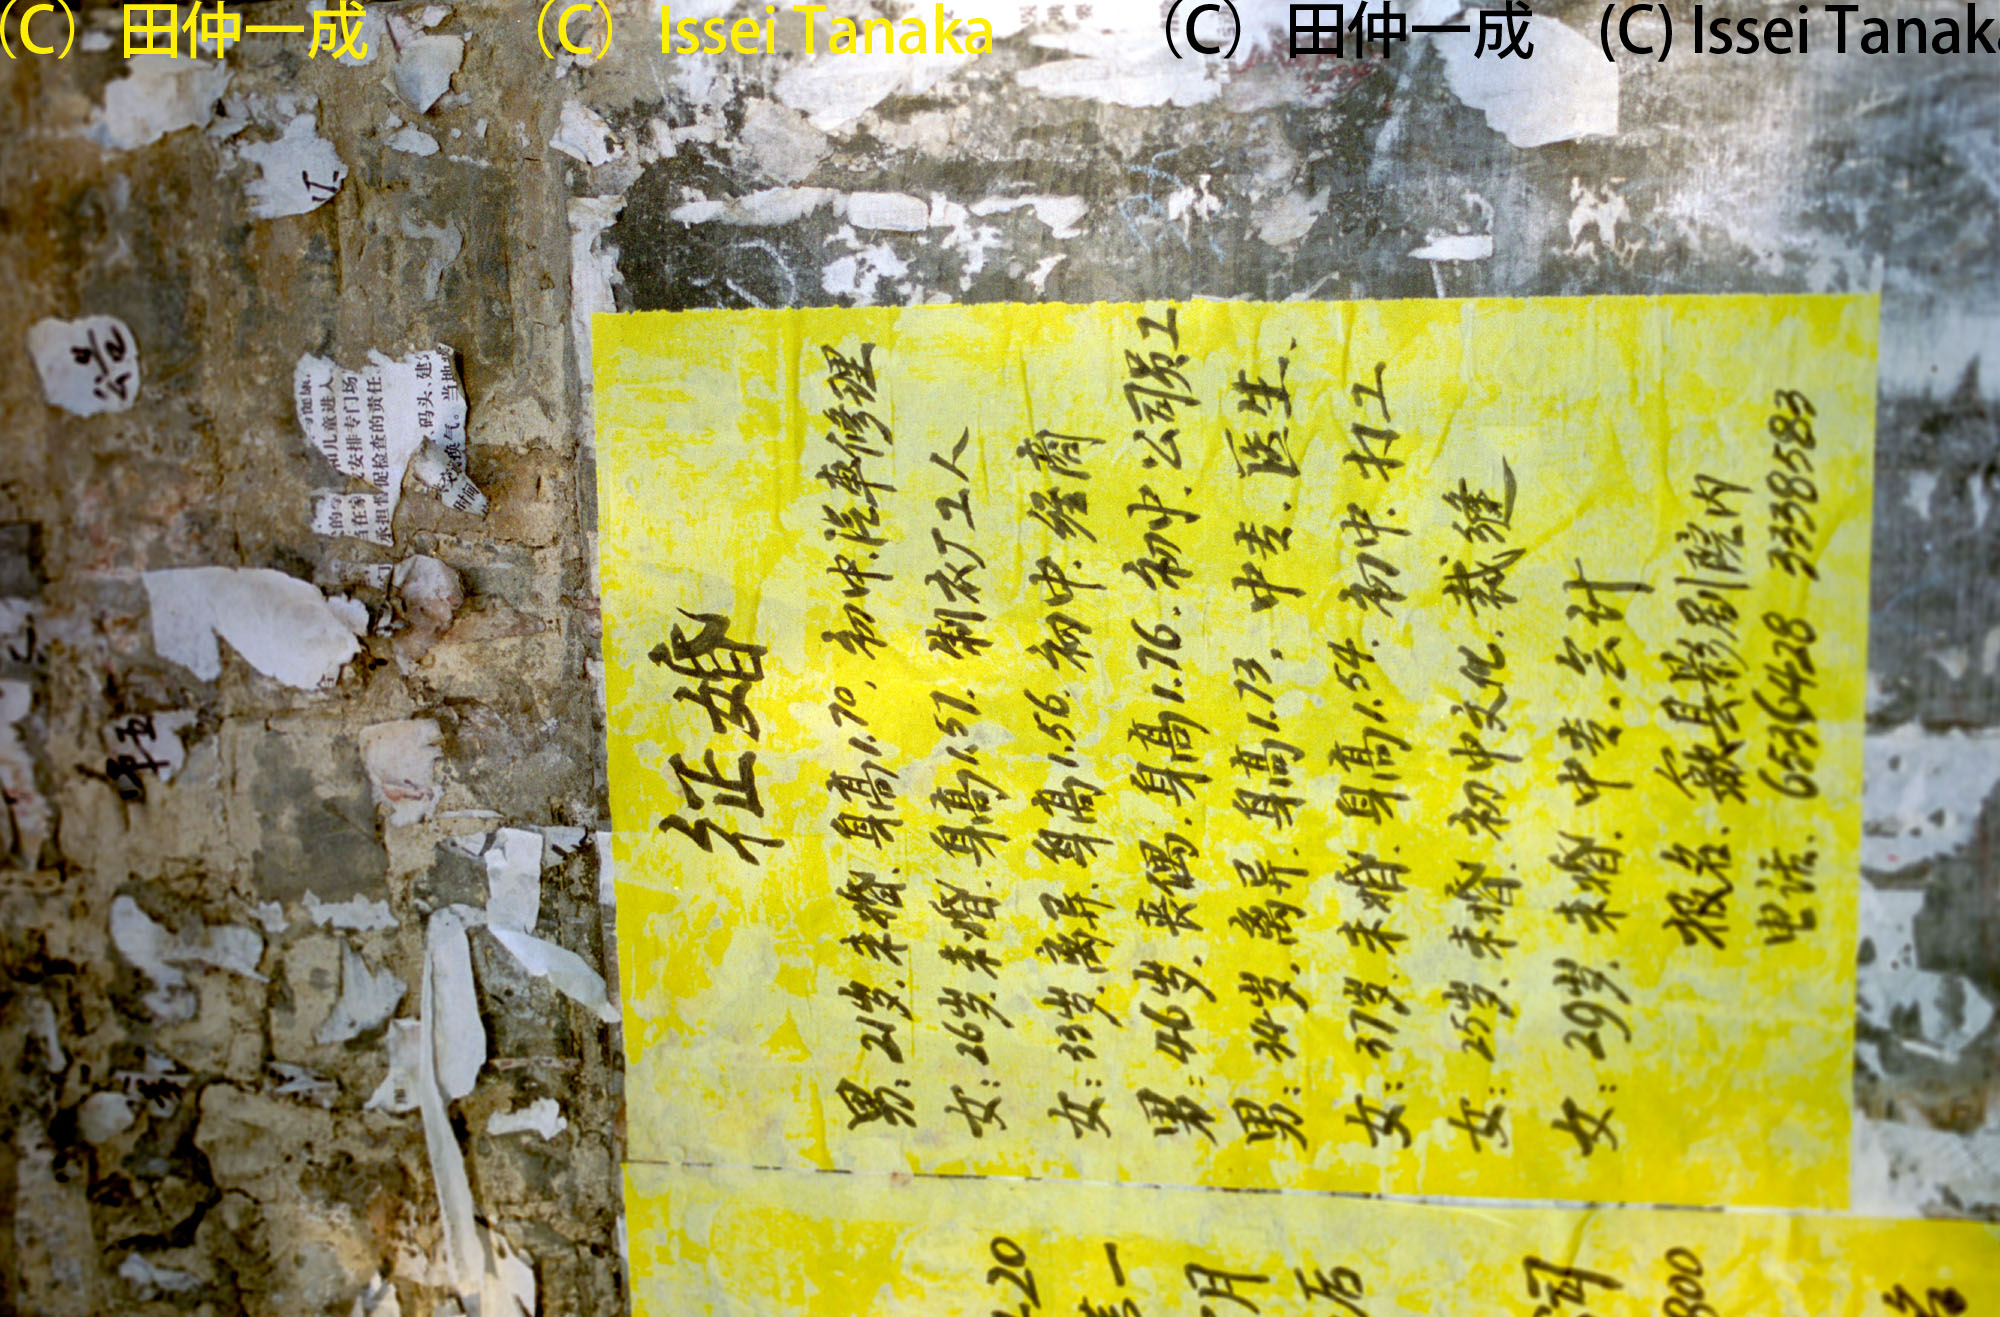 (C) 田仲一成 (C) Issei Tanaka (C) 田仲一成 (C) Issei Tanaka
征婚
男:21岁.未婚.身高1.70.初中.汽车修理
女:26岁.未婚.身高1.57.制衣厂工人
女:33岁.离异.身高1.56.初中.经商
男:46岁.丧偶.身高1.76.初中.公司员工
男:34岁.离异.身高1.73.中专.医生.
女:37岁.未婚.身高1.54.初中.打工
女:25岁.未婚.初中文化.裁缝
女:29岁.未婚.中专.会计
报名.歙县影剧院内
电话.6536428 3338583
和儿童进入
安排专门场
承担督促检查的责任
码头、建
换气。当地
时间
公告